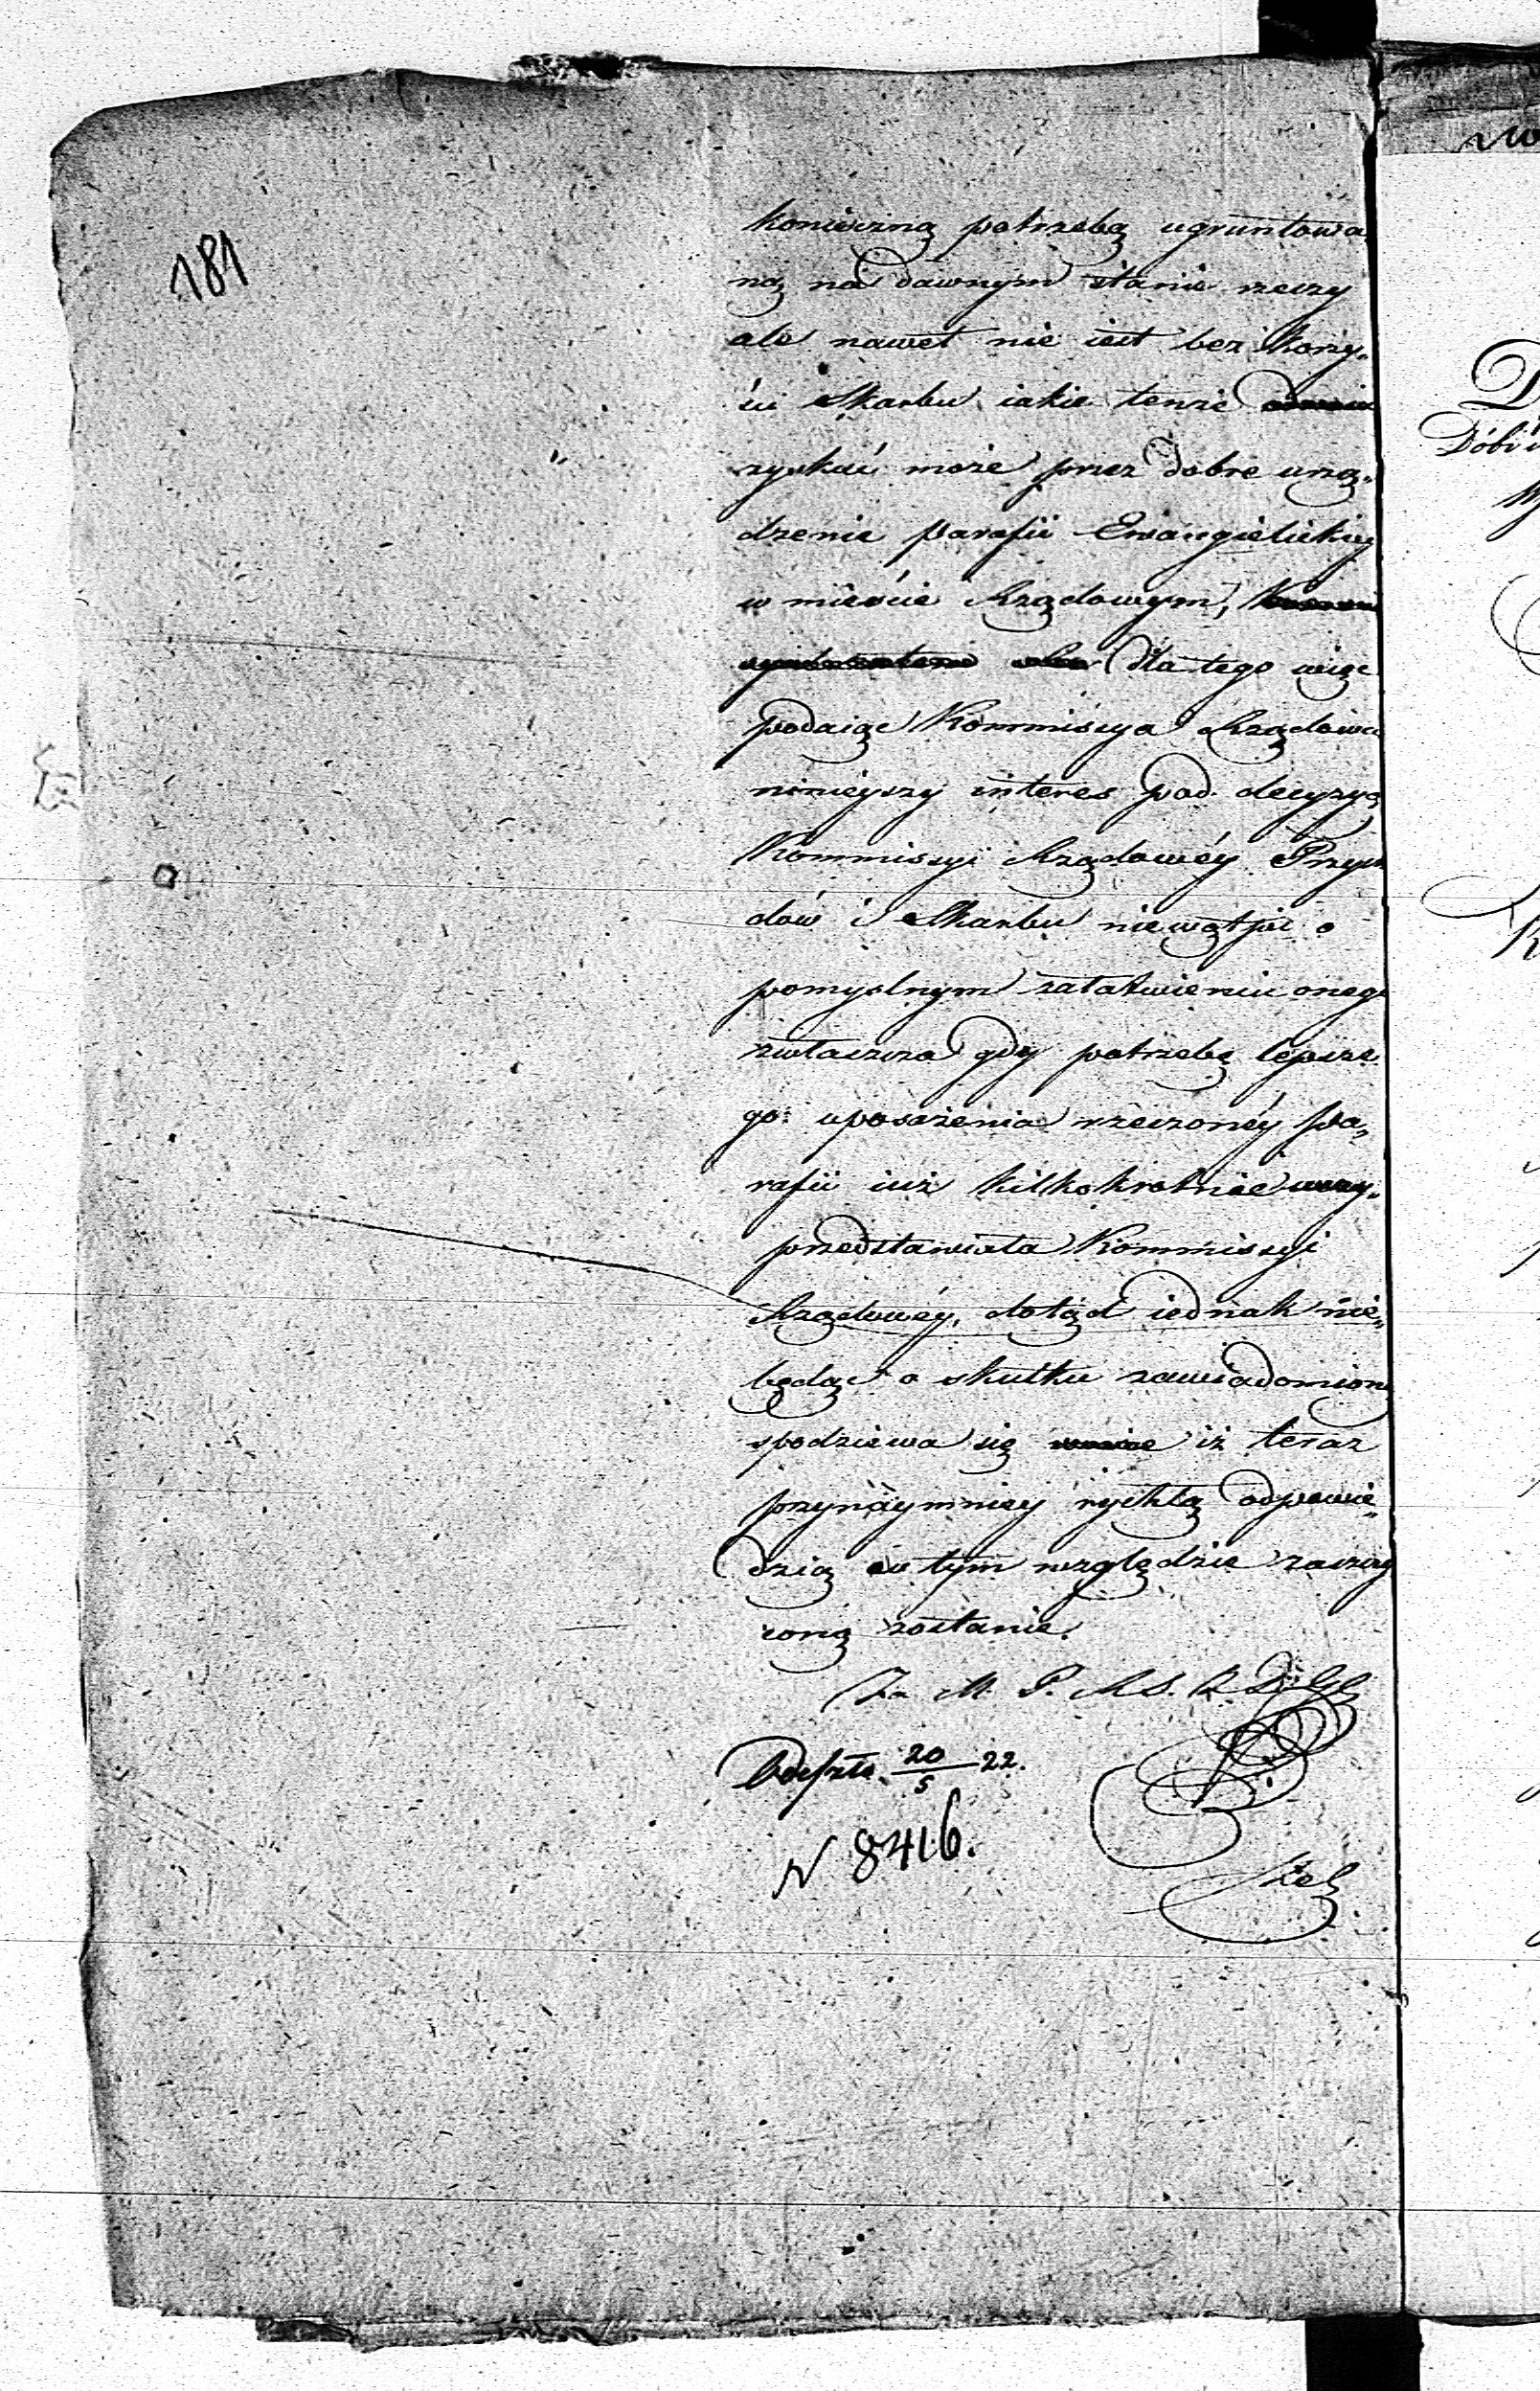 181
konieczną potrzebą ugruntowa„
ną na dawnym stanie rzeczy
ale nawet nie iest bez korzy„
ści Skarbu iakie tenże
zyskać może przez dobre urzą„
dzenie parafii Ewangielickiey
w mieście Rządowym,
dla tego więc
podaiąc Kommissya Rządowa
ninieyszy interes pod decyzyą
Kommissyi Rządowéy Przych
dów i Skarbu niewątpi o
pomyslnym załatwieniu onego
zwłaszcza gdy potrzebę lepsze
go uposażenia rzeczonéy pa„
rafii iuż kilkokrotnie
przedstawiała Kommissyi
Rządowéy, dotąd iednak nie„
będąc o skutku zawiadomioną
spodziewa się iż teraz
przynaymniey rychłą odpowie„
dzią w tym względzie zaszczy
coną zostanie.
Za M. P.
Odeszło 20/5 22.
N 8416.